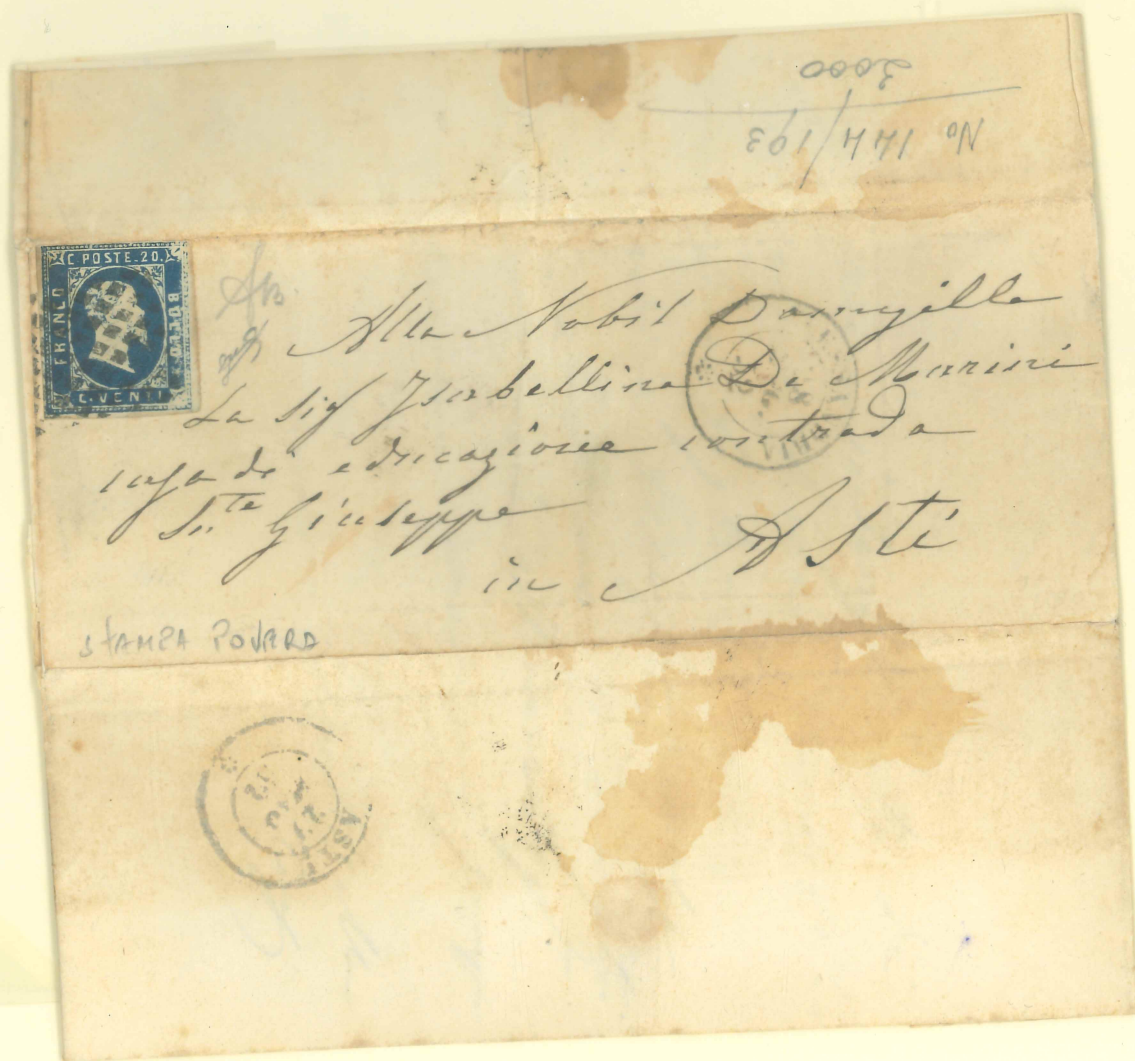 3000
No 144/193
C. POSTE. 20.
FRANCO
BOLLO
C. VENTI
Alla Nobil Damigella
La Sig Isabellina De Marini
casa di educazione contrada
Sn.te Giuseppe
in Asti
STAMPA POVERA
ASTI
27